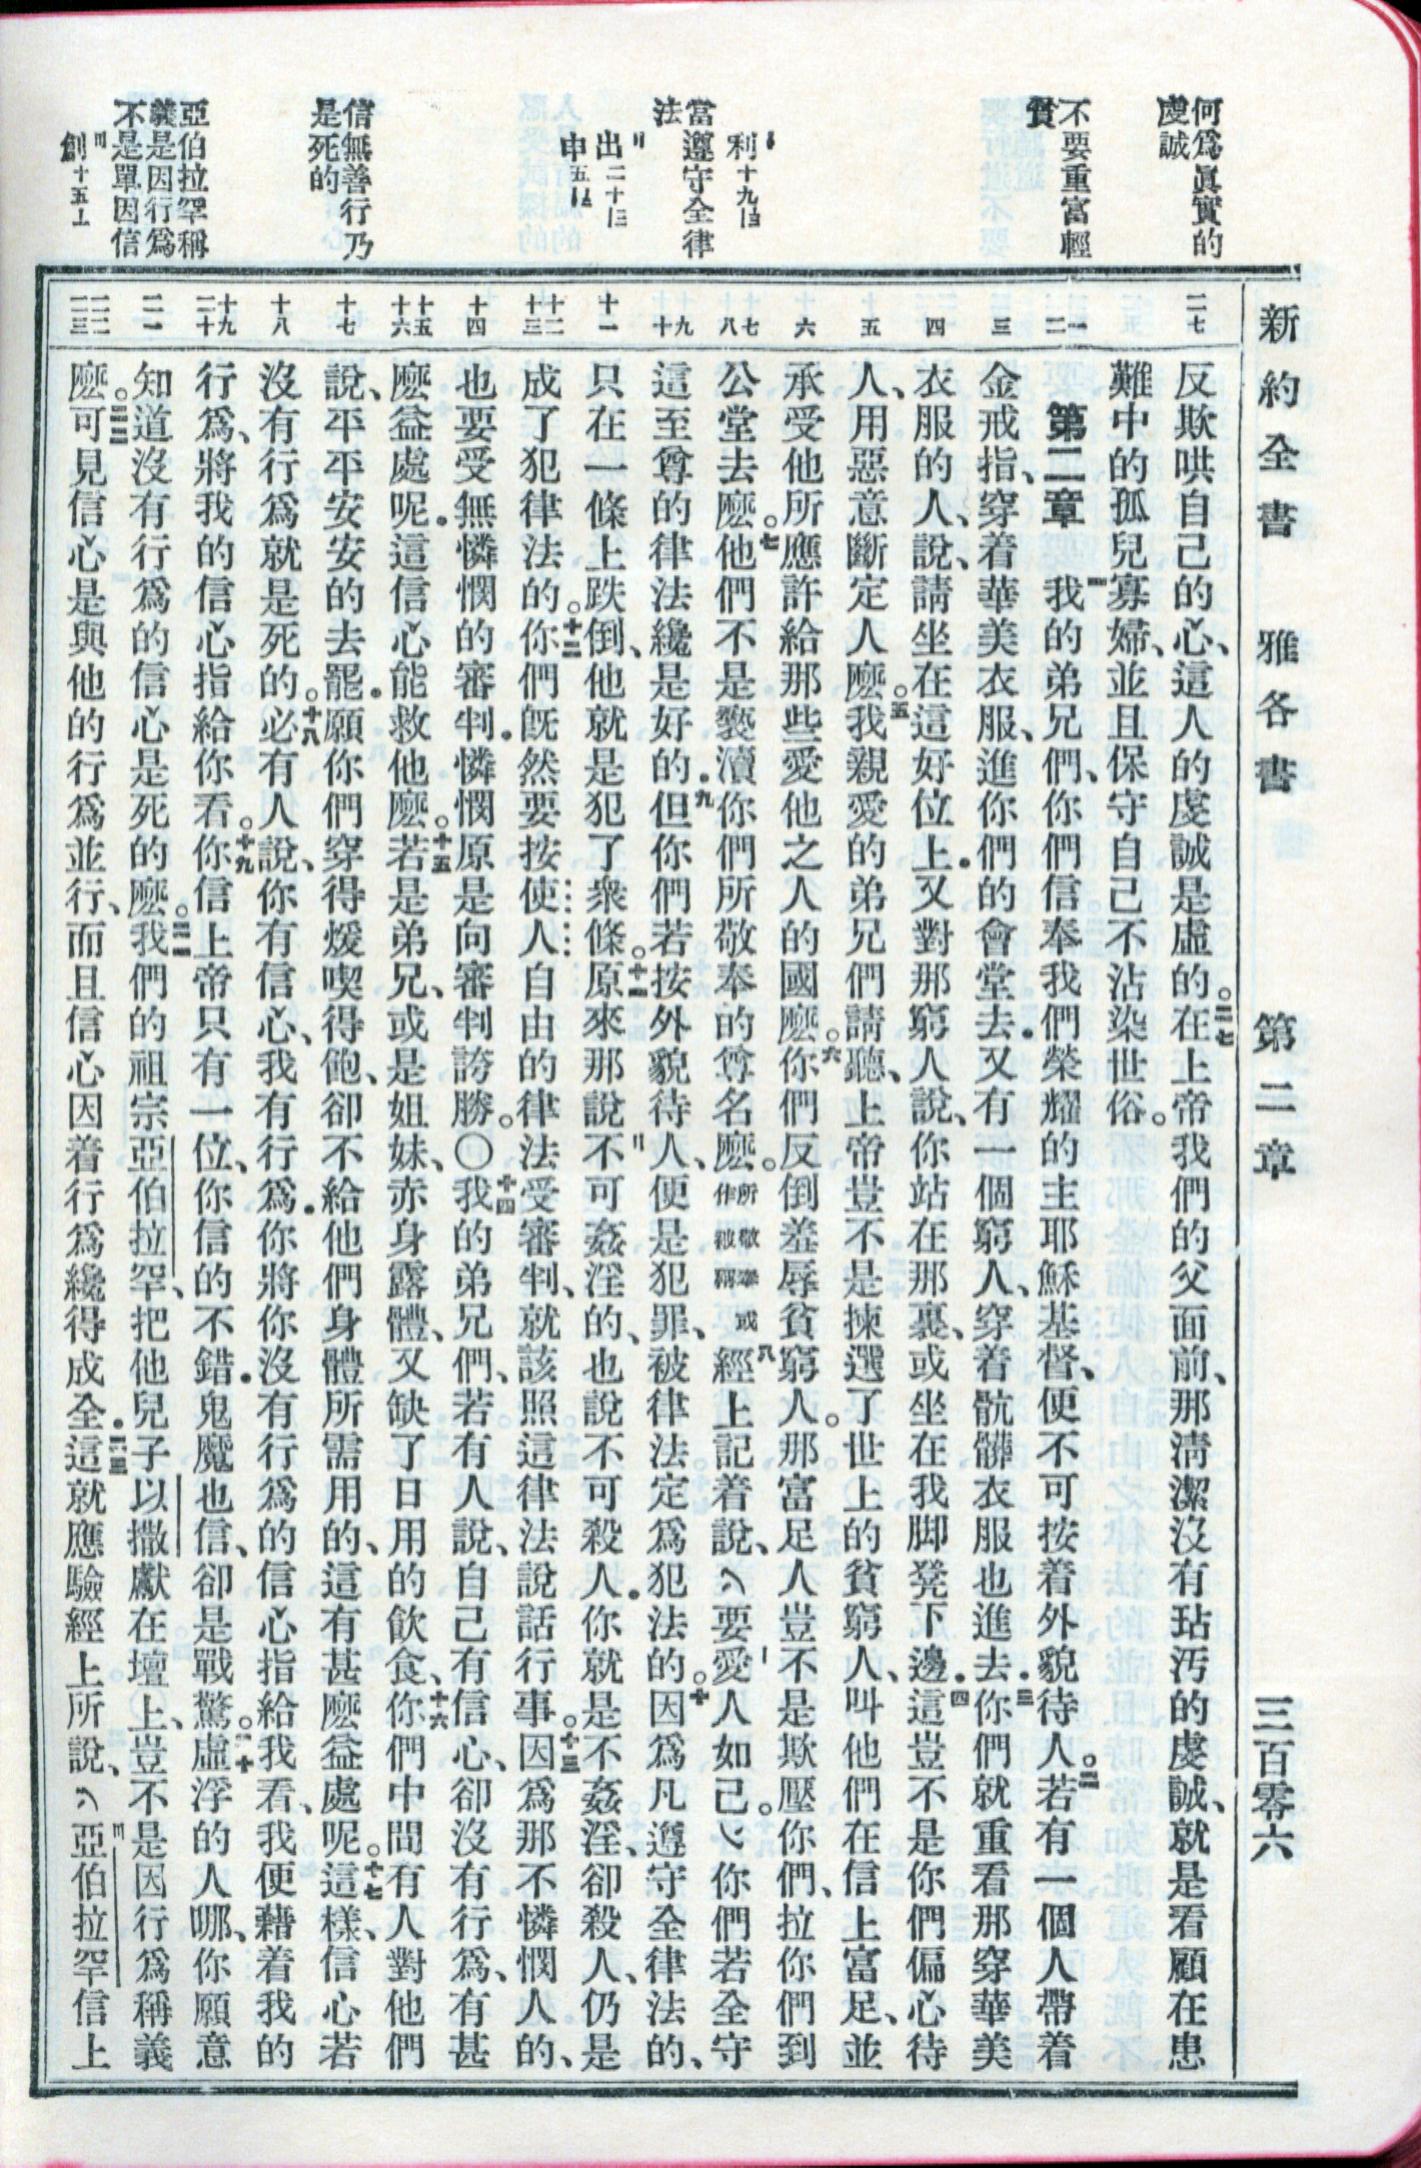 新約全書　雅各書　第二章　三百零六
何爲眞實的
虔誠
不要重富輕
貧
利十九
當遵守全律
法
出二十
申五
信無善行乃
是死的
亞伯拉罕稱
義是因行爲
不是單因信
創十五
二七
一
二
三
四
五
六
七
八
九
十
十一
十二
十三
十四
十五
十六
十七
十八
十九
二十
二一
二二
二三
反欺哄自己的心、這人的虔誠是虛的。二七在上帝我們的父面前、那淸潔沒有玷污的虔誠、就是看顧在患
難中的孤兒寡婦、並且保守自己不沾染世俗。
第二章　一我的弟兄們、你們信奉我們榮耀的主耶穌基督、便不可按着外貌待人。二若有一個人帶着
金戒指、穿着華美衣服、進你們的會堂去．又有一個窮人、穿着骯髒衣服也進去．三你們就重看那穿華美
衣服的人、說、請坐在這好位上．又對那窮人說、你站在那裏、或坐在我脚凳下邊．四這豈不是你們偏心待
人、用惡意斷定人麽。五我親愛的弟兄們請聽、上帝豈不是揀選了世上的貧窮人、叫他們在信上富足、並
承受他所應許給那些愛他之人的國麽。六你們反倒羞辱貧窮人。那富足人豈不是欺壓你們、拉你們到
公堂去麽。七他們不是褻瀆你們所敬奉的尊名麽。所敬奉或作被稱八經上記着說、要愛人如己。你們若全守
這至尊的律法纔是好的．九但你們若按外貌待人、便是犯罪、被律法定爲犯法的。十因爲凡遵守全律法的、
只在一條上跌倒、他就是犯了衆條。十一原來那說不可姦淫的、也說不可殺人．你就是不姦淫、卻殺人、仍是
成了犯律法的。十二你們既然要按使人自由的律法受審判、就該照這律法說話行事。十三因爲那不憐憫人的、
也要受無憐憫的審判．憐憫原是向審判誇勝。〇十四我的弟兄們、若有人說、自己有信心、卻沒有行爲、有甚
麽益處呢．這信心能救他麽。十五若是弟兄、或是姐妹、赤身露體、又缺了日用的飲食、十六你們中間有人對他們
說、平平安安的去罷．願你們穿得煖喫得飽、卻不給他們身體所需用的、這有甚麽益處呢。十七這樣、信心若
沒有行爲就是死的。十八必有人說、你有信心、我有行爲．你將你沒有行爲的信心指給我看、我便藉着我的
行爲、將我的信心指給你看。十九你信上帝只有一位、你信的不錯．鬼魔也信、卻是戰驚。二十虛浮的人哪、你願意
知道沒有行爲的信心是死的麽。二一我們的祖宗亞伯拉罕、把他兒子以撒獻在壇上、豈不是因行爲稱義
麽。二二可見信心是與他的行爲並行、而且信心因着行爲纔得成全．二三這就應驗經上所說、亞伯拉罕信上